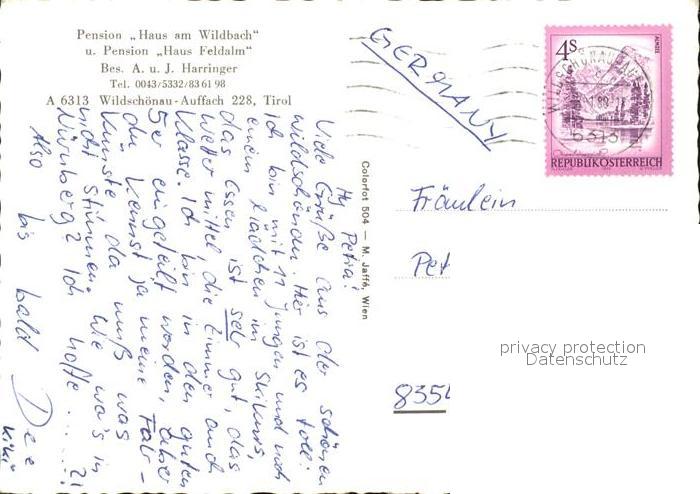 Pension „Haus am Wildbach"
u. Pension „Haus Feldalm"
Bes. A. u. J. Harringer
Tel. 0043/5332/83 61 98
A 6313 Wildschönau-Auffach 228, Tirol
GERMANY
4S
REPUBLIK ÖSTERREICH
Hy Petra!
Viele Grüße aus der schönen
Wildschönau. Hier ist es toll!
Ich bin mit 11 Jungen und noch
einem Mädchen im Skikurs,
das Essen ist sehr gut, das
Wetter mittel, die Zimmer auch
Klasse. Ich bin in den guten
5er eingeteilt worden, aber
du kennst ja meine Fahr-
künste da muß was
nicht stimmen. Wie wa's in
Nürnberg? Ich hoffe ....?!
Also bis bald
Colorfot 504 — M. Jaffé, Wien
Fräulein
Pet
835
privacy protection
Datenschutz